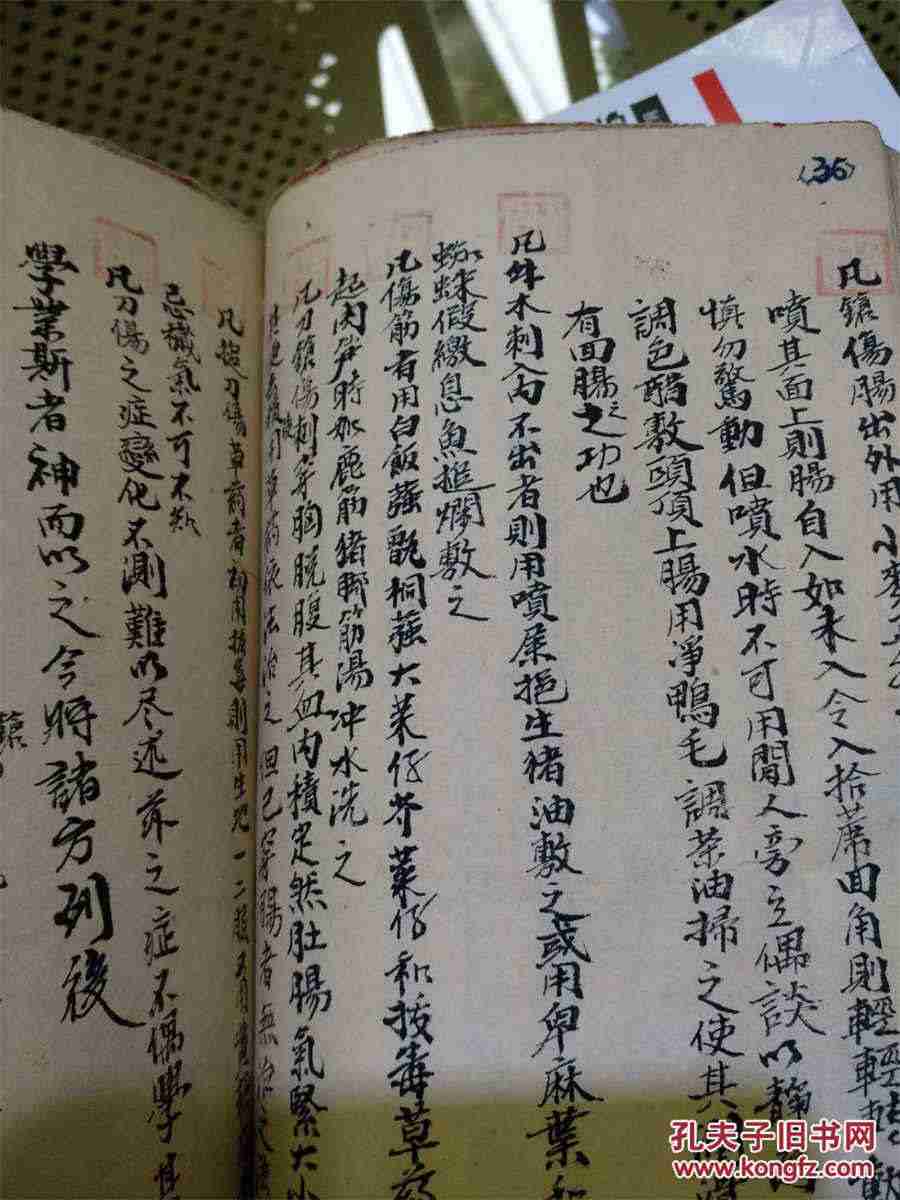 36
凡鎗傷腸出外用小麥五
噴其面上則腸自入如未入令入拾蓆四角則輕輕
慎勿驚動但噴水時不可用閒人旁立偶談以靜為
調色醋敷頭頂上腸用淨鴨毛調茶油掃之使其
有回腸之功也
凡竹木刺入肉不出者則用噴屎抱生猪油敷之或用卑麻葉和
蜘蛛假繳息魚搥爛敷之
凡傷筋者用白飯蕹飯桐蕹大菜仔芥菜仔和拔毒草药
起肉笋時如鹿筋猪脚筋湯冲水洗之
凡刀鎗傷刺穿胸脘腹其血内積定然肚腸氣緊大小
用草药依法治之但已穿腸者無治
凡搲刀傷草药者初用拔毒則用生肥一二服
忌穢氣不可不欺
凡刀傷之症變化不測難以尽述亦之症不偶學
學業斯者神而以之今將諸方列後
孔夫子旧书网
www.kongfz.com